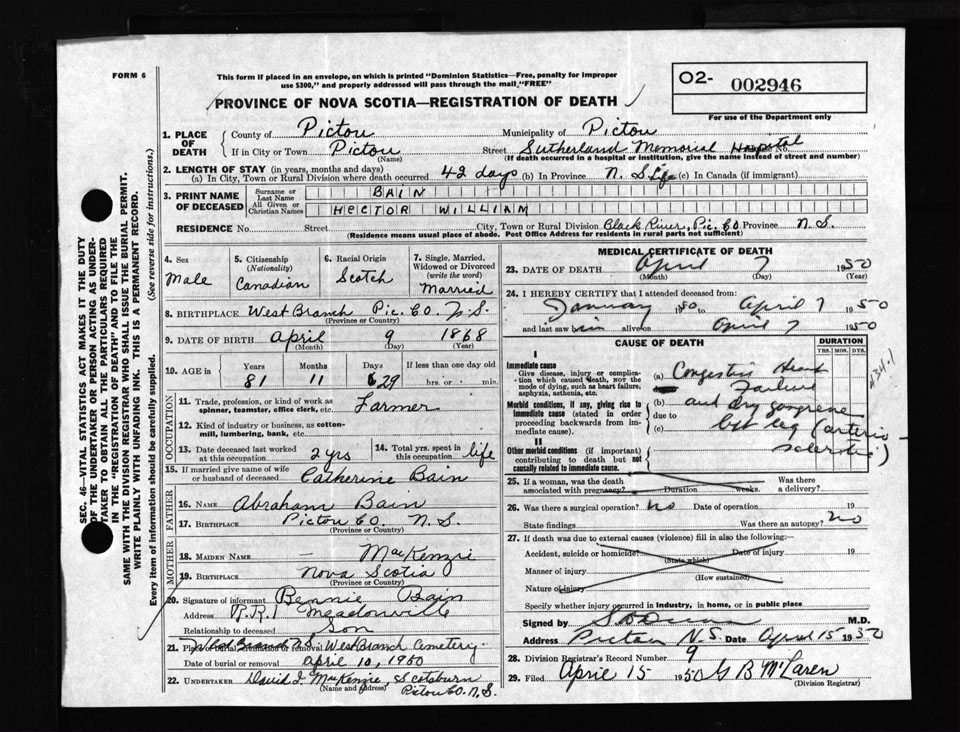 FORM 6
This form if placed in an envelope, on which is printed "Dominion Statistics—Free, penalty for improper
use $300," and properly addressed will pass through the mail "FREE"
O2- 002946
For use of the Department only
PROVINCE OF NOVA SCOTIA—REGISTRATION OF DEATH
1. PLACE OF DEATH { County of Pictou Municipality of Pictou
If in City or Town Pictou Street Sutherland Memorial Hospital No.
(Name) (If death occurred in a hospital or institution, give the name instead of street and number)
2. LENGTH OF STAY (in years, months and days)
(a) In City, Town or Rural Division where death occurred 42 days (b) In Province N. S. Life (c) In Canada (if immigrant)
3. PRINT NAME OF DECEASED { Surname or Last Name BAIN
All Given or Christian Names HECTOR WILLIAM
RESIDENCE No. Street City, Town or Rural Division Black River, Pic. Co. Province N. S.
(Residence means usual place of abode. Post Office Address for residents in rural parts not sufficient)
4. Sex Male
5. Citizenship (Nationality) Canadian
6. Racial Origin Scotch
7. Single, Married, Widowed or Divorced (write the word) Married
8. BIRTHPLACE West Branch Pic. Co. N. S.
(Province or Country)
9. DATE OF BIRTH April 9 1868
(Month) (Day) (Year)
10. AGE in Years 81 Months 11 Days 29 If less than one day old hrs. or min.
OCCUPATION
11. Trade, profession, or kind of work as spinner, teamster, office clerk, etc. Farmer
12. Kind of industry or business, as cotton-mill, lumbering, bank, etc.
13. Date deceased last worked at this occupation 2 yrs
14. Total yrs. spent in this occupation life
15. If married give name of wife or husband of deceased Catherine Bain
FATHER
16. NAME Abraham Bain
17. BIRTHPLACE Pictou Co. N. S.
(Province or Country)
MOTHER
18. MAIDEN NAME — MacKenzie
19. BIRTHPLACE Nova Scotia
(Province or Country)
20. Signature of informant Bennie Bain
Address R.R.1 Meadowville
Relationship to deceased Son
21. Place of burial, cremation or removal West Branch Cemetery
Date of burial or removal April 10, 1950
22. UNDERTAKER David J. MacKenzie, Scotsburn
(Name and address) Pictou Co. N. S.
MEDICAL CERTIFICATE OF DEATH
23. DATE OF DEATH April 7 1950
(Month) (Day) (Year)
24. I HEREBY CERTIFY that I attended deceased from:
January 1950 to April 7 1950
and last saw him alive on April 7 1950
CAUSE OF DEATH
DURATION
YRS. MOS. DYS.
I
Immediate cause
Give disease, injury or complication which caused death, not the mode of dying, such as heart failure, asphyxia, asthenia, etc.
(a) Congestive Heart
Failure
Morbid conditions, if any, giving rise to immediate cause (stated in order proceeding backwards from immediate cause).
(b) and dry gangrene
due to
(c) left leg (arterio-
sclerotic)
434.1
II
Other morbid conditions (if important) contributing to death but not causally related to immediate cause.
25. If a woman, was the death associated with pregnancy? Duration weeks. Was there a delivery?
26. Was there a surgical operation? no Date of operation 19
State findings Was there an autopsy? no
27. If death was due to external causes (violence) fill in also the following:—
Accident, suicide or homicide? Date of injury 19
(State which)
Manner of injury
(How sustained)
Nature of injury
Specify whether injury occurred in industry, in home, or in public place
Signed by M.D.
Address Pictou N. S. Date April 15 1950
28. Division Registrar's Record Number 9
29. Filed April 15 1950 G B McLaren
(Division Registrar)
SEC. 46—VITAL STATISTICS ACT MAKES IT THE DUTY
OF THE UNDERTAKER OR PERSON ACTING AS UNDER-
TAKER TO OBTAIN ALL THE PARTICULARS REQUIRED
IN THE "REGISTRATION OF DEATH" AND TO FILE THE
SAME WITH THE DIVISION REGISTRAR WHO SHALL ISSUE THE BURIAL PERMIT.
WRITE PLAINLY WITH UNFADING INK. THIS IS A PERMANENT RECORD.
Every item of information should be carefully supplied. (See reverse side for instructions.)